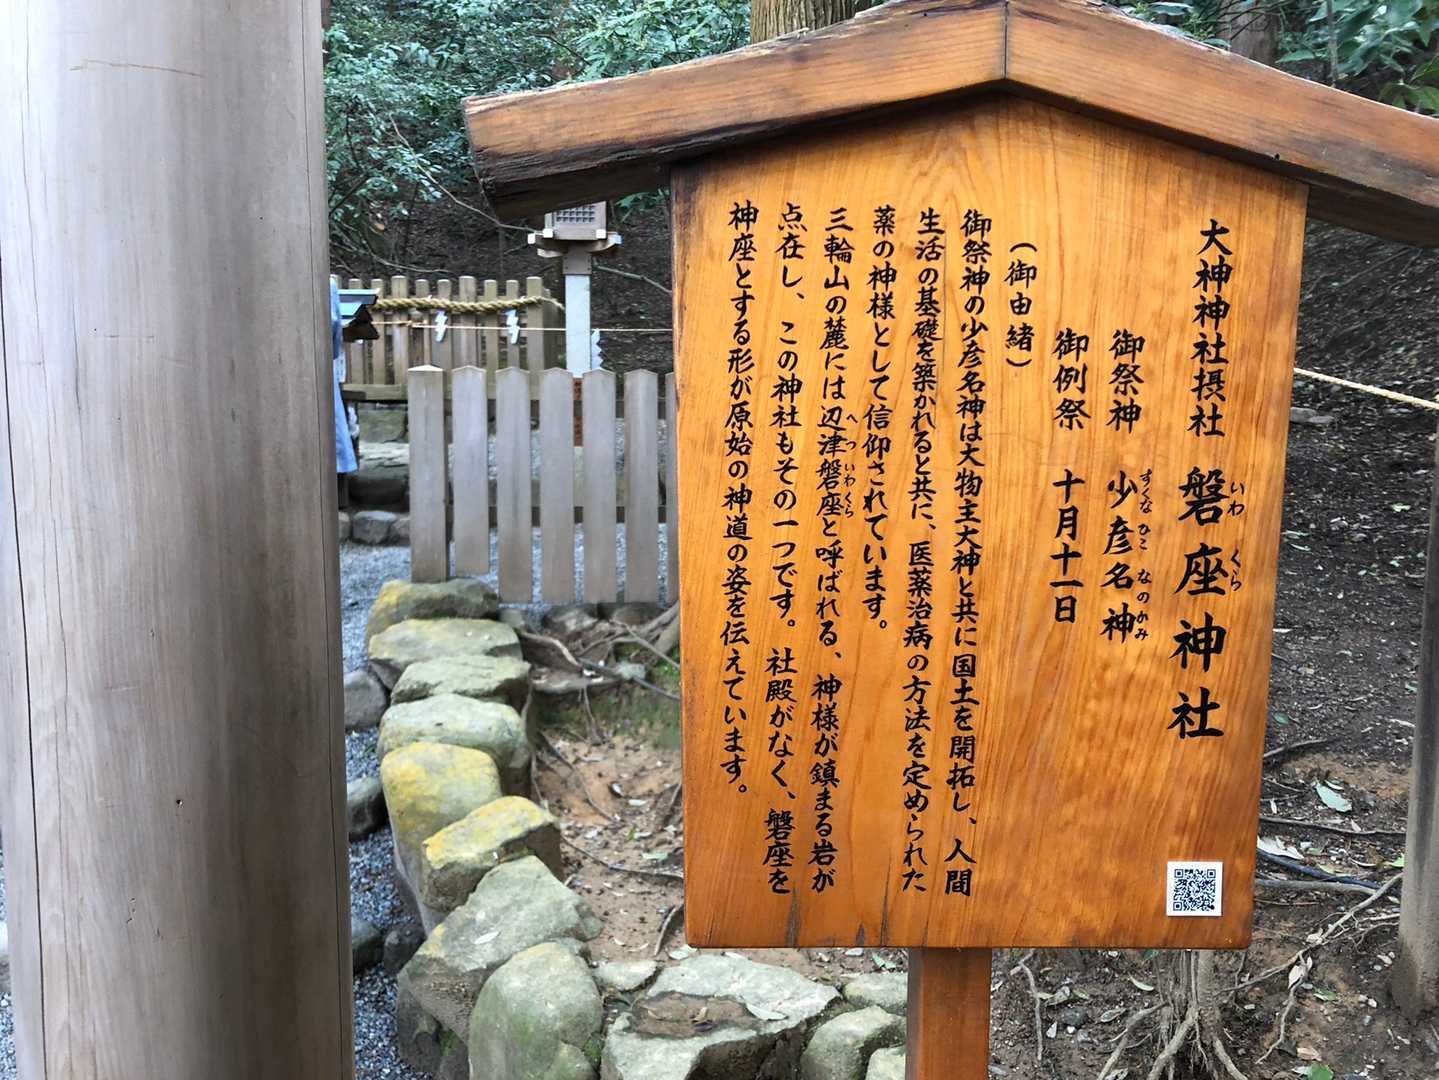 大神神社摂社 磐座神社
いわ くら
御祭神 少彦名神
すくな ひこ なのかみ
御例祭 十月十一日
(御由緒)
御祭神の少彦名神は大物主大神と共に国土を開拓し、人間
生活の基礎を築かれると共に、医薬治病の方法を定められた
薬の神様として信仰されています。
三輪山の麓には辺津磐座と呼ばれる、神様が鎮まる岩が
へ つ いわ くら
点在し、この神社もその一つです。社殿がなく、磐座を
神座とする形が原始の神道の姿を伝えています。